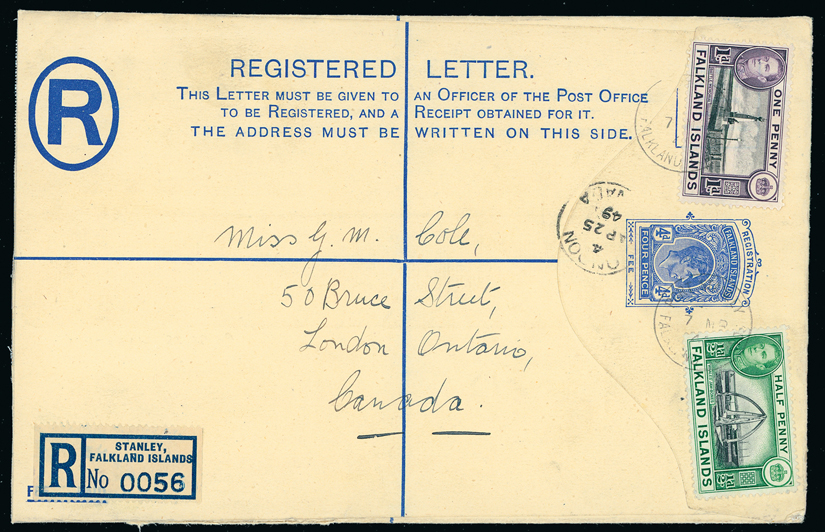 R
REGISTERED LETTER.
THIS LETTER MUST BE GIVEN TO AN OFFICER OF THE POST OFFICE
TO BE REGISTERED, AND A RECEIPT OBTAINED FOR IT.
THE ADDRESS MUST BE WRITTEN ON THIS SIDE.
1d
ONE PENNY
FALKLAND ISLANDS
1d
7
FALKLAND
4
AP 25
49
REGISTRATION
FALKLAND ISLANDS
4d
FOUR PENCE
4d
FEE
7
Miss G. M. Cole,
50 Bruce Street,
London Ontario,
Canada.
½d
HALF PENNY
FALKLAND ISLANDS
½d
R
STANLEY,
FALKLAND ISLANDS
No 0056
F